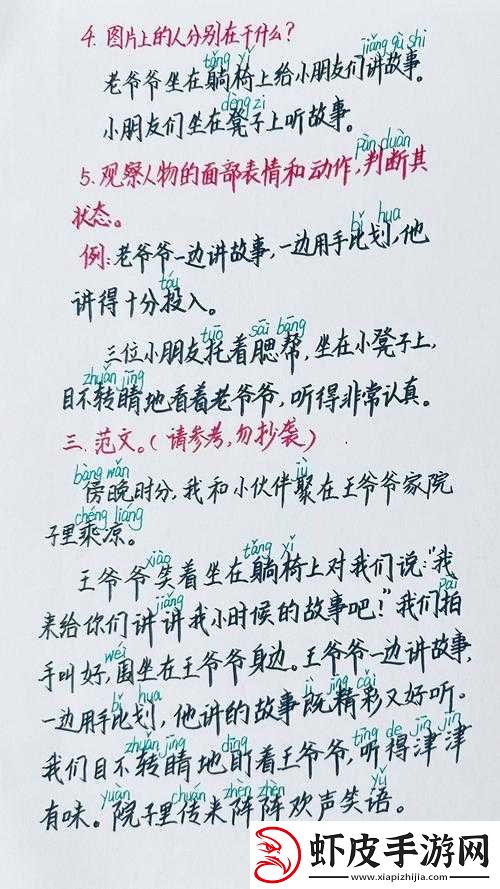 4. 图片上的人分别在干什么?
tǎng yǐ jiǎng gù shi
老爷爷坐在躺椅上给小朋友们讲故事。
dèng zi
小朋友们坐在凳子上听故事。
pàn duàn
5.观察人物的面部表情和动作,判断其
状态。
bǐ hua
例:老爷爷一边讲故事,一边用手比划,他
tóu
讲得十分投入。
tuō sāi bāng
三位小朋友托着腮帮,坐在小凳子上,
zhuǎn jīng
目不转睛地看着老爷爷,听得非常认真。
三.范文。(请参考,勿抄袭)
bàng wǎn jù
傍晚时分,我和小伙伴聚在王爷爷家院
chéng liáng
子里乘凉。
xiào tǎng yǐ
王爷爷笑着坐在躺椅上对我们说:"我
jiǎng pāi
来给你们讲讲我小时候的故事吧!"我们拍
wéi
手叫好,围坐在王爷爷身边。王爷爷一边讲故事,
bǐ hua jì jīng cǎi
一边用手比划,他讲的故事既精彩又好听。
zhuǎn jīng dīng tīng de jīn jīn
我们目不转睛地盯着王爷爷,听得津津
yuàn chuán zhèn zhèn yǔ
有味。院子里传来阵阵欢声笑语。
虾皮手游网
www.xiapizhijia.com